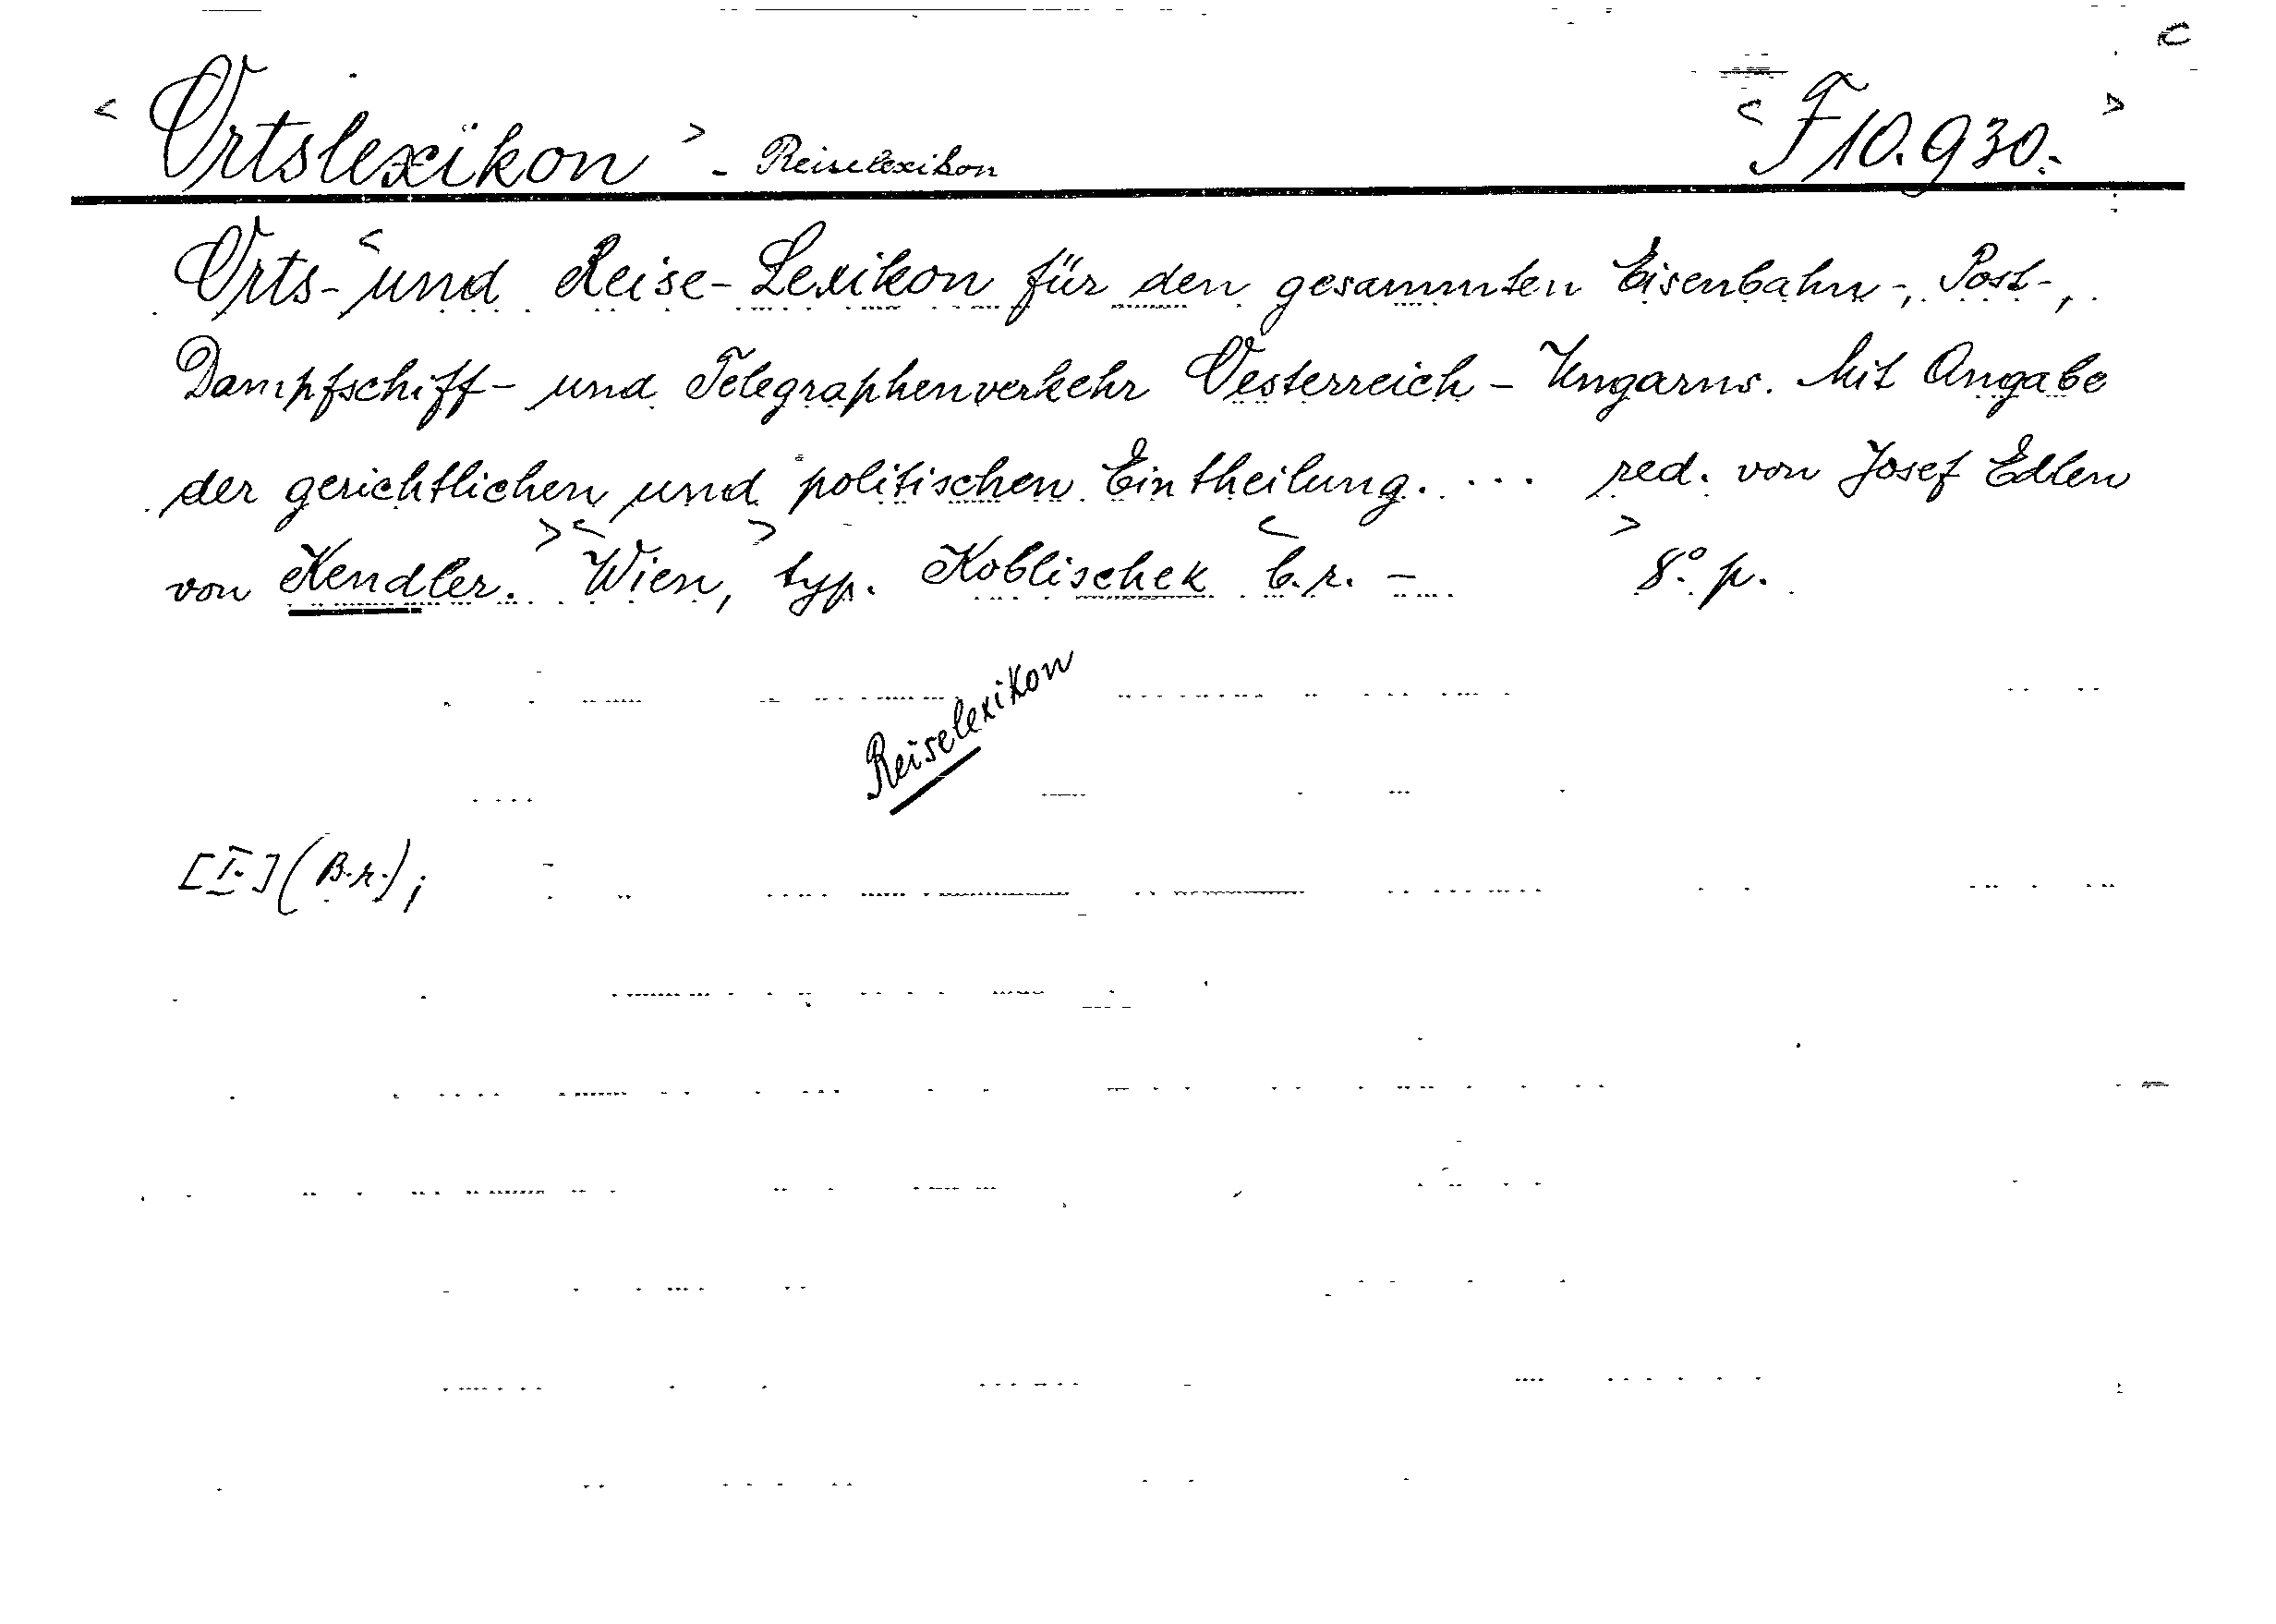 < Ortslexikon > - Reiselexikon < F 10.930. >
Orts- < und Reise-Lexikon für den gesammten Eisenbahn-, Post-,
Dampfschiff- und Telegraphenverkehr Oesterreich-Ungarns. Mit Angabe
der gerichtlichen und politischen Eintheilung. ... red. von Josef Edlen
von Kendler. > < Wien, > typ. Koblischek < b.r. - > 8°. p.
Reiselexikon
[I.] (B.r.);